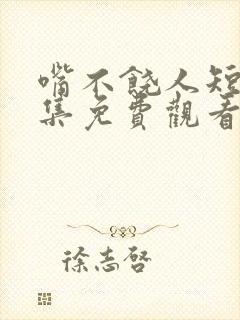 嘴不饶人短
集免費觀看
徐志啓